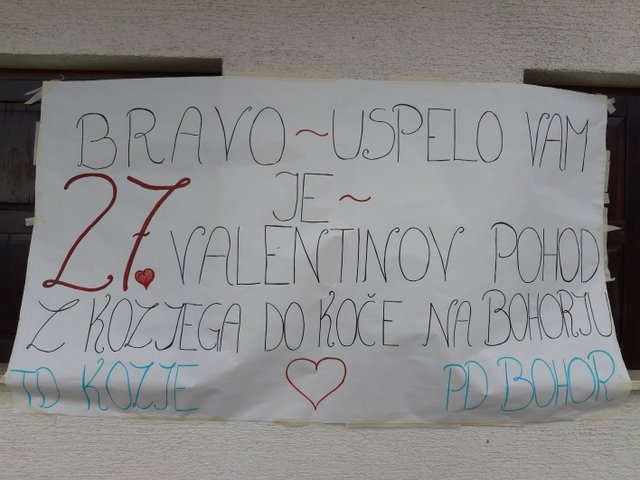 BRAVO ~ USPELO VAM
JE ~
27. VALENTINOV POHOD
Z KOZJEGA DO KOČE NA BOHORJU
TD KOZJE PD BOHOR